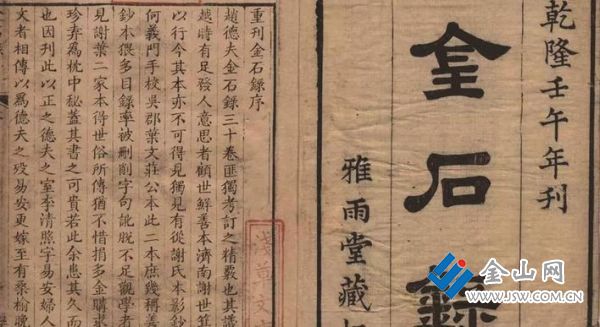 乾隆壬午年刊
金石錄
雅雨堂藏
重刊金石錄序
趙德夫金石錄三十卷匪獨考訂之精覈也其議
越時有足發人意思者顧世尟善本濟南謝世箕
以行今其本亦不可得見獨見有從謝氏本影鈔
何義門手校吳郡葉文莊公本此二本庶幾稱善
鈔本猥多目錄率被刪削字句訛脫不足觀學者
見謝葉二家本得世俗所傳猶不惜捐多金購求
珍弆爲枕中秘蓋其書之可貴若此余患其久而
也因刊此以正之德夫之室李清照字易安婦人
文者相傳以爲德夫之歿易安更嫁至有桑榆晚
淺草文
金山网
WWW.JSW.COM.CN